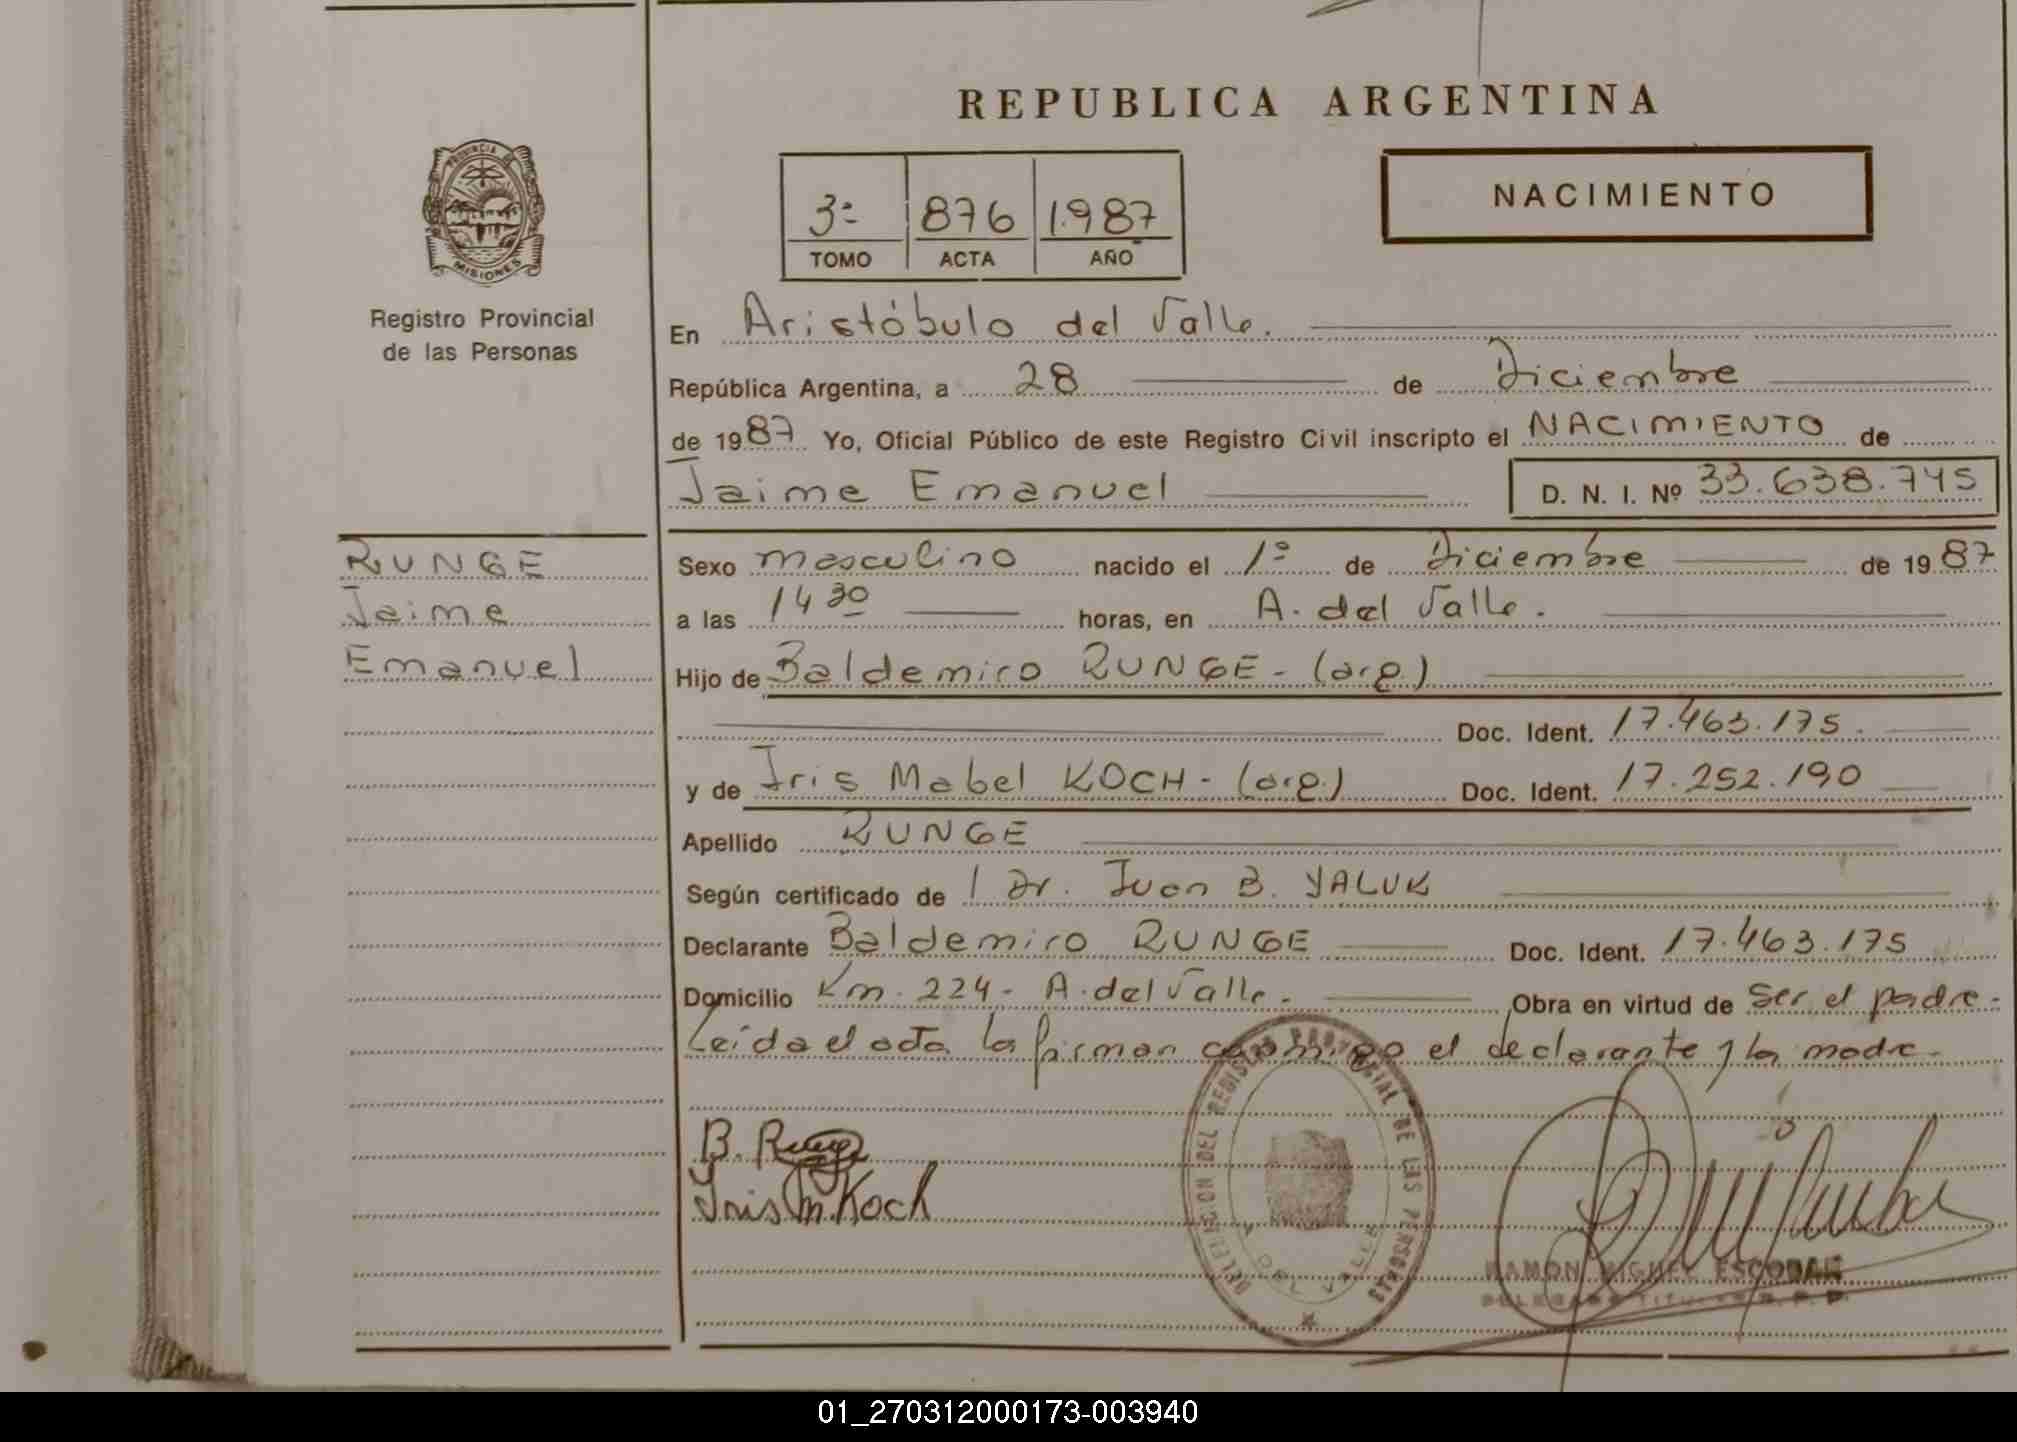 REPUBLICA ARGENTINA
PROVINCIA DE
MISIONES
Registro Provincial
de las Personas
3ª 876 1.987
TOMO ACTA AÑO
NACIMIENTO
En Aristóbulo del Valle.
República Argentina, a 28 de Diciembre
de 1987 Yo, Oficial Público de este Registro Civil inscripto el NACIMIENTO de
Jaime Emanuel D. N. I. Nº 33.638.745
RUNGE
Jaime
Emanuel
Sexo masculino nacido el 1º de Diciembre de 1987
a las 14 30 horas, en A. del Valle.
Hijo de Baldemiro RUNGE - (arg.)
Doc. Ident. 17.463.175.
y de Iris Mabel KOCH - (arg.) Doc. Ident. 17.252.190
Apellido RUNGE
Según certificado de l Dr. Juan B. YALUK
Declarante Baldemiro RUNGE Doc. Ident. 17.463.175
Domicilio Km. 224 - A. del Valle. Obra en virtud de ser el padre.
Leída el acta la firman conmigo el declarante y la madre.
B. Runge
Iris M. Koch
DELEGACION DEL REGISTRO PROVINCIAL DE LAS PERSONAS
A. DEL VALLE
RAMON MIGUEL ESCOBAR
DELEGADO TITULAR R. P. P.
01_270312000173-003940